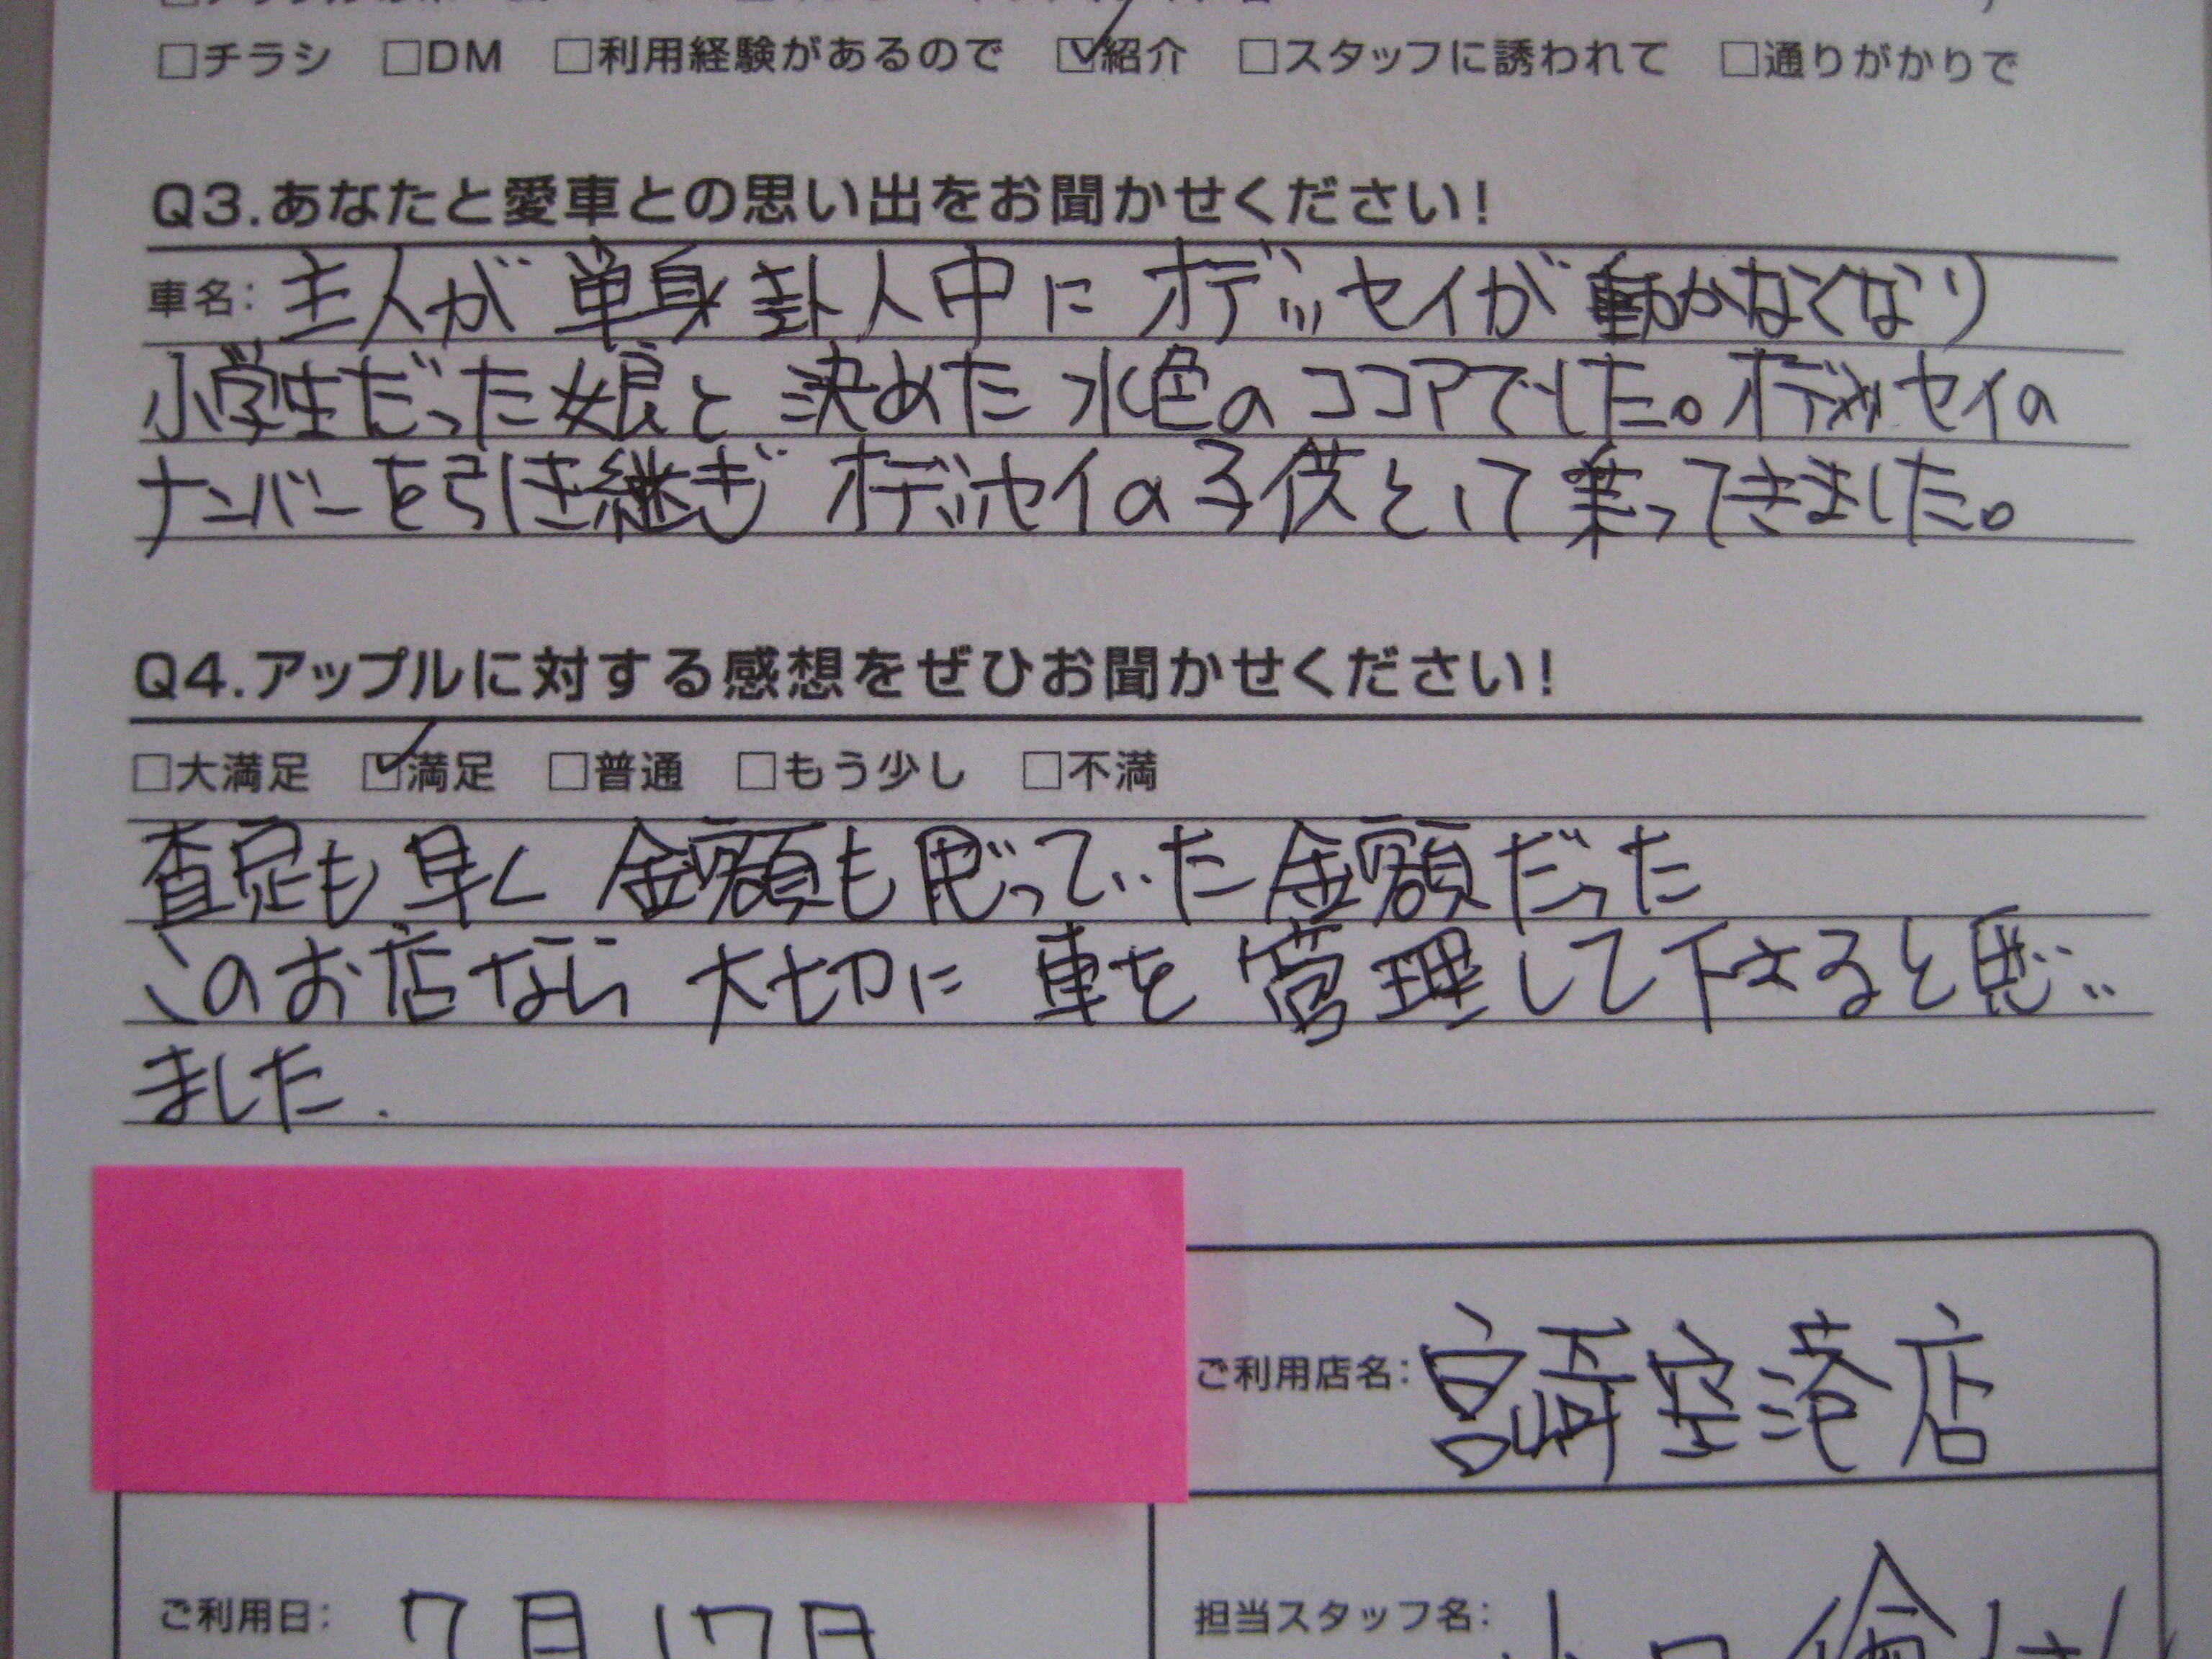 □チラシ □DM □利用経験があるので ☑紹介 □スタッフに誘われて □通りがかりで
Q3.あなたと愛車との思い出をお聞かせください!
車名: 主人が 単身赴任中に オデッセイが 動かなくなり
小学生だった娘と 決めた 水色のココアでした。オデッセイの
ナンバーを引き継ぎ オデッセイの子供として乗ってきました。
Q4.アップルに対する感想をぜひお聞かせください!
□大満足 ☑満足 □普通 □もう少し □不満
査定も早く 金額も思っていた金額だった
このお店なら 大切に 車を 管理して下さると思い
ました.
ご利用店名: 宮崎空港店
ご利用日: 7月17日
担当スタッフ名: